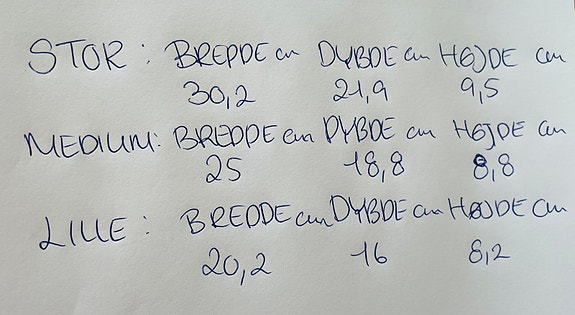 STOR: BREDDE cm DYBDE cm HØJDE cm
30,2 21,9 9,5
MEDIUM: BREDDE cm DYBDE cm HØJDE cm
25 18,8 8,8
LILLE: BREDDE cm DYBDE cm HØJDE cm
20,2 16 8,2